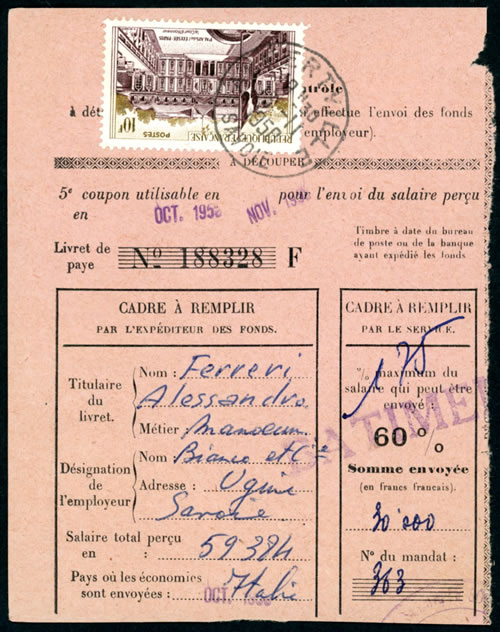 PALAIS DE L'ELYSÉE - PARIS
10F
POSTES
RÉPUBLIQUE FRANÇAISE
1958
ntrôle
à dét effectue l'envoi des fonds
employeur).
A DÉCOUPER
5e coupon utilisable en pour l'envoi du salaire perçu
en
OCT. 1958
NOV.
Timbre à date du bureau
de poste ou de la banque
ayant expédié les fonds
Livret de
paye
No 188328 F
CADRE À REMPLIR
PAR L'EXPÉDITEUR DES FONDS.
Titulaire
du livret.
Nom : Ferreri
Alessandro
Métier : Manoeuv
Désignation
de l'employeur
Nom Bianco et Cie
Adresse : Ugine
Savoie
Salaire total perçu
en : 59 384
Pays où les économies
sont envoyées : Italie
OCT. 1958
CADRE À REMPLIR
PAR LE SERVICE.
% maximum du
salaire qui peut être
envoyé :
175
BATIMEN
60 %
Somme envoyée
(en francs français).
30 000
No du mandat :
363